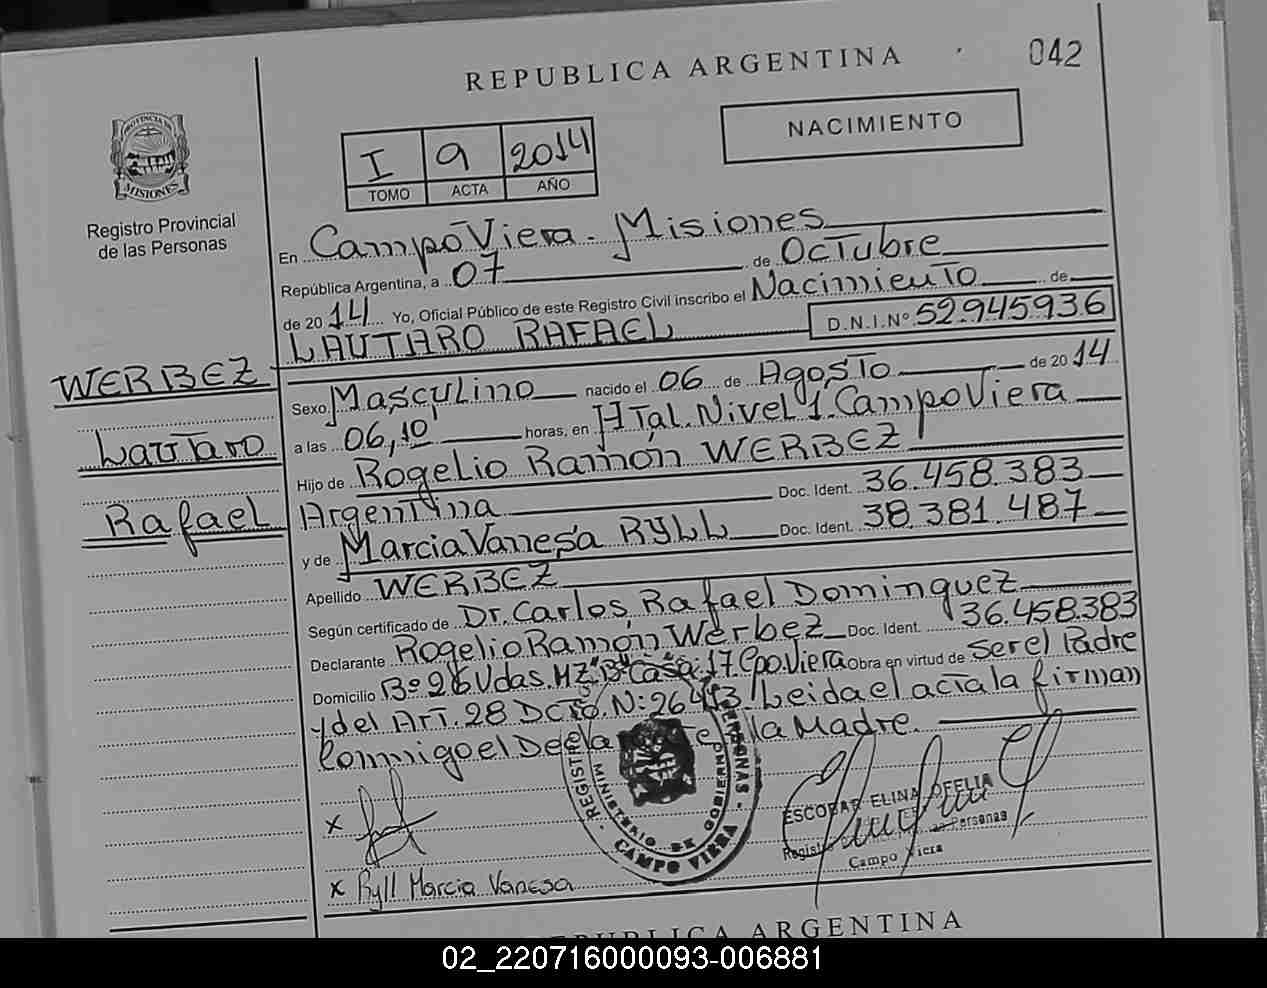 REPUBLICA ARGENTINA
042
PROVINCIA DE MISIONES
Registro Provincial
de las Personas
I 9 2014
TOMO ACTA AÑO
NACIMIENTO
En Campo Viera - Misiones
República Argentina, a 07 de Octubre
de 2014 Yo, Oficial Público de este Registro Civil inscribo el Nacimiento de
LAUTARO RAFAEL D.N.I.Nº 52.945.936
WERBEZ
Lautaro
Rafael
Sexo Masculino nacido el 06 de Agosto de 2014
a las 06,10' horas, en HTal. Nivel 1. Campo Viera
Hijo de Rogelio Ramón WERBEZ
Argentina Doc. Ident. 36.458.383
y de Marcia Vanesa RYLL Doc. Ident. 38.381.487
Apellido WERBEZ
Según certificado de Dr. Carlos Rafael Dominguez
Declarante Rogelio Ramón Werbez Doc. Ident. 36.458.383
Domicilio Bº 26 Vdas. MZ "B" Casa: 17 Cpo. Viera Obra en virtud de ser el Padre
y del Art. 28 DCTO. N: 26413. Leida el acta la firman
Conmigo el la Madre.
REGISTRO PERSONAS
MINISTERIO DE GOBIERNO
CAMPO VIERA
ESCOBAR ELINA OFELIA
Registro Personas
Campo Viera
x
x Ryll Marcia Vanesa
REPUBLICA ARGENTINA
02_220716000093-006881